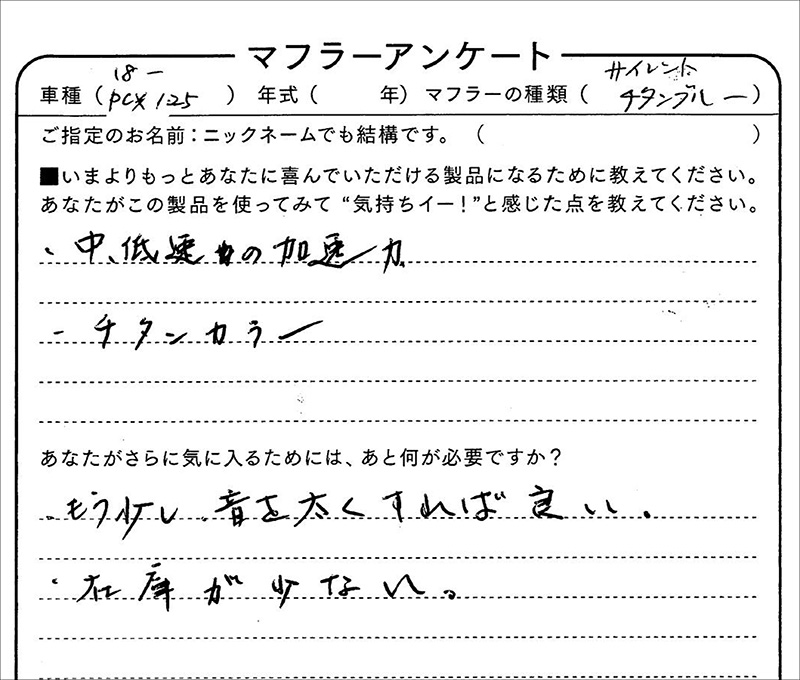 マフラーアンケート
車種（18ー PCX 125） 年式（ 年）マフラーの種類（サイレント チタンブルー）
ご指定のお名前：ニックネームでも結構です。（ ）
■いまよりもっとあなたに喜んでいただける製品になるために教えてください。
あなたがこの製品を使ってみて“気持ちイー！”と感じた点を教えてください。
・中、低速の加速力
・チタンカラー
あなたがさらに気に入るためには、あと何が必要ですか？
・もう少し、音を太くすれば良い。
・在庫が少ない。